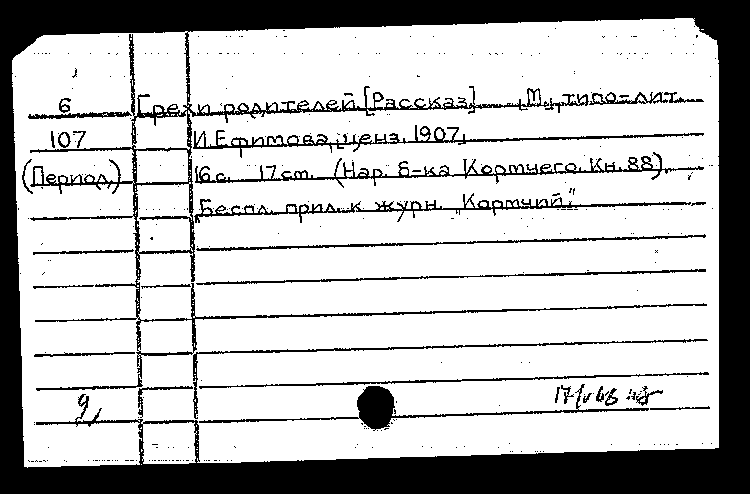 6 Грехи родителей. [Рассказ] М., типо-лит.
107 И. Ефимова, ценз. 1907.
(Период.) 16 с. 17 см. (Нар. б-ка Кормчего. Кн. 88).
Беспл. прил. к журн. „Кормчий."